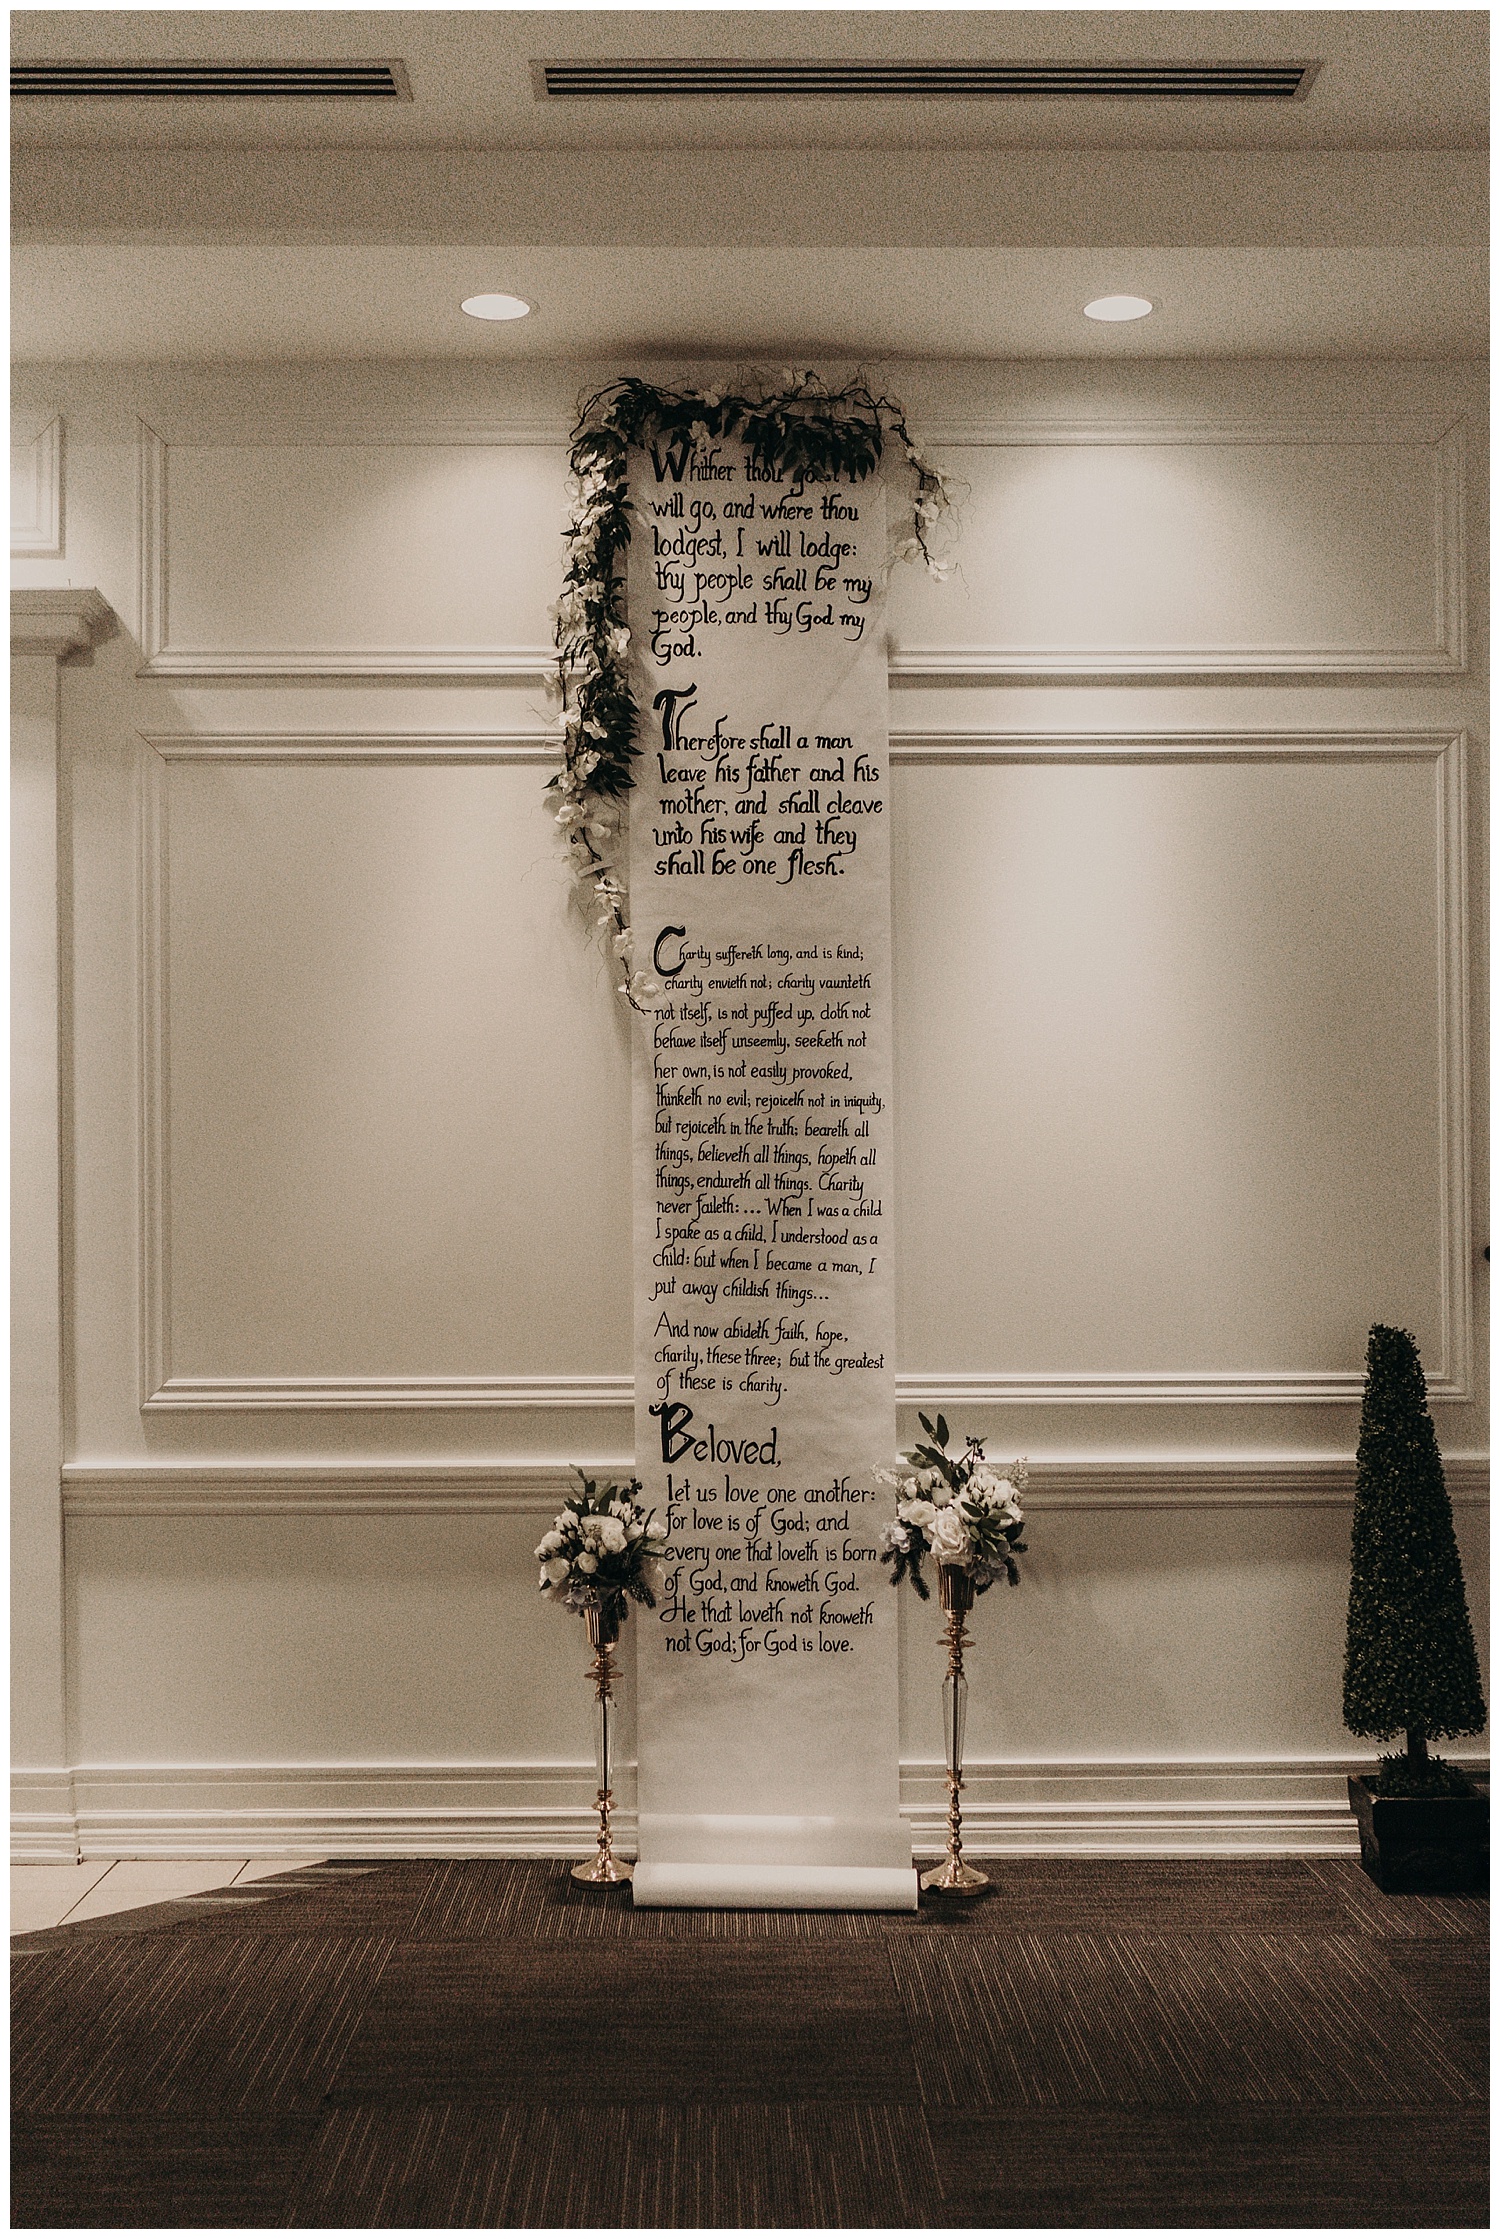 Whither thou goest I
will go, and where thou
lodgest, I will lodge:
thy people shall be my
people, and thy God my
God.
Therefore shall a man
leave his father and his
mother, and shall cleave
unto his wife and they
shall be one flesh.
Charity suffereth long, and is kind;
charity envieth not; charity vaunteth
not itself, is not puffed up, doth not
behave itself unseemly, seeketh not
her own, is not easily provoked,
thinketh no evil; rejoiceth not in iniquity,
but rejoiceth in the truth; beareth all
things, believeth all things, hopeth all
things, endureth all things. Charity
never faileth: ... When I was a child
I spake as a child, I understood as a
child: but when I became a man, I
put away childish things...
And now abideth faith, hope,
charity, these three; but the greatest
of these is charity.
Beloved,
let us love one another:
for love is of God; and
every one that loveth is born
of God, and knoweth God.
He that loveth not knoweth
not God; for God is love.